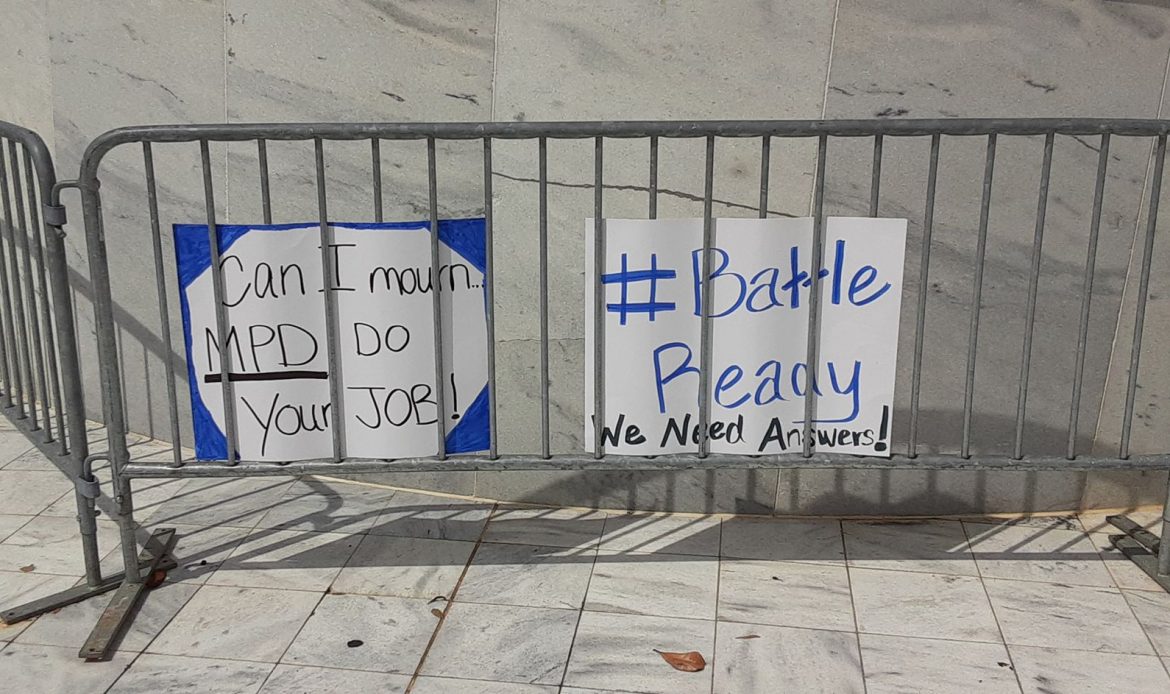 Can I mourn...
MPD DO
Your JOB!
#Battle
Ready
We Need Answers!